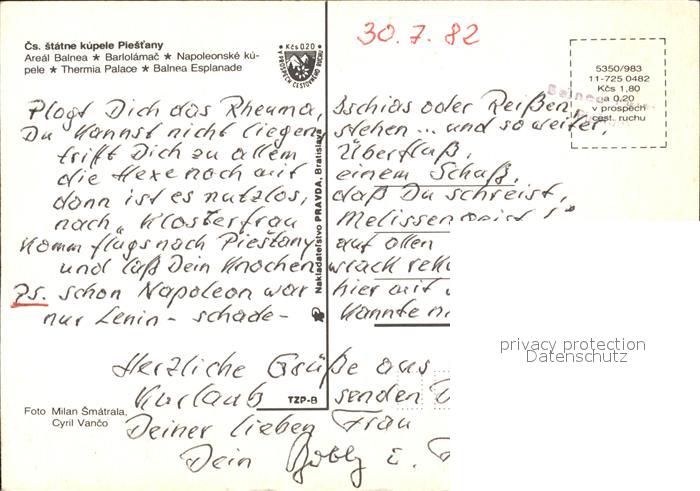 30.7.82
Čs. štátne kúpele Piešťany
Areál Balnea ★ Bartolámač ★ Napoleonské kú-
pele ★ Thermia Palace ★ Balnea Esplanade
Kčs 0.20
5350/983
11-725 0482
Kčs 1,80
a 0,20
v prospech
cest. ruchu
Balnea
Plagt Dich das Rheuma, Ischias oder Reißen,
Du kannst nicht liegen, stehen... und so weiter,
trifft Dich zu allem Überfluß,
die Hexe noch mit einem Schuß,
dann ist es nutzlos, daß Du schreist,
nach „Klosterfrau Melissengeist!"
Komm flugs nach Piešťany auf allen
und laß Dein Knochenwrack
Ps. schon Napoleon war hier mit
nur Lenin - schade - kannte
Herzliche Grüße aus
Kurlaub senden
Deiner lieben Frau
Dein
Nakladateľstvo PRAVDA, Bratislava
TZP-B
Foto Milan Šmátrala,
Cyril Vančo
privacy protection
Datenschutz